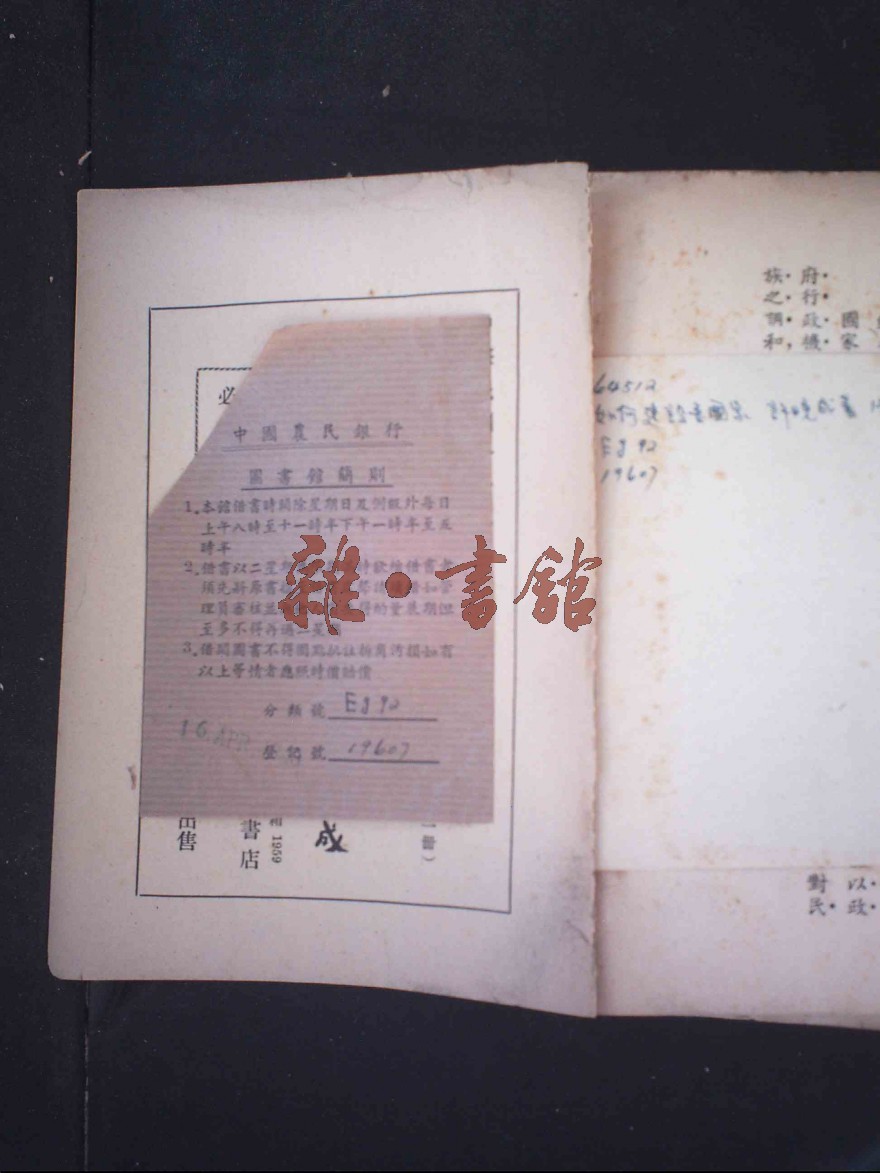 必
中國農民銀行
圖書館簡則
1.本館借書時間除星期日及例假外每日
上午八時至十一時半下午一時半至五
時半
2.借書以二星期
須先將原書
理員審核 得酌量展期但
至多不得再過二星期
3.借閱圖書不得圈點批註折角污損如有
以上等情者應照時價賠償
分類號 Eg92
登記號 19607
16 APR
出售
書店
1959
成
一冊）
雜·書館
族·府·
之·行·
調·政·國
和，機·家
64512
如何建設吾國家 許晚成著
Eg92
19607
對以·
民·政·